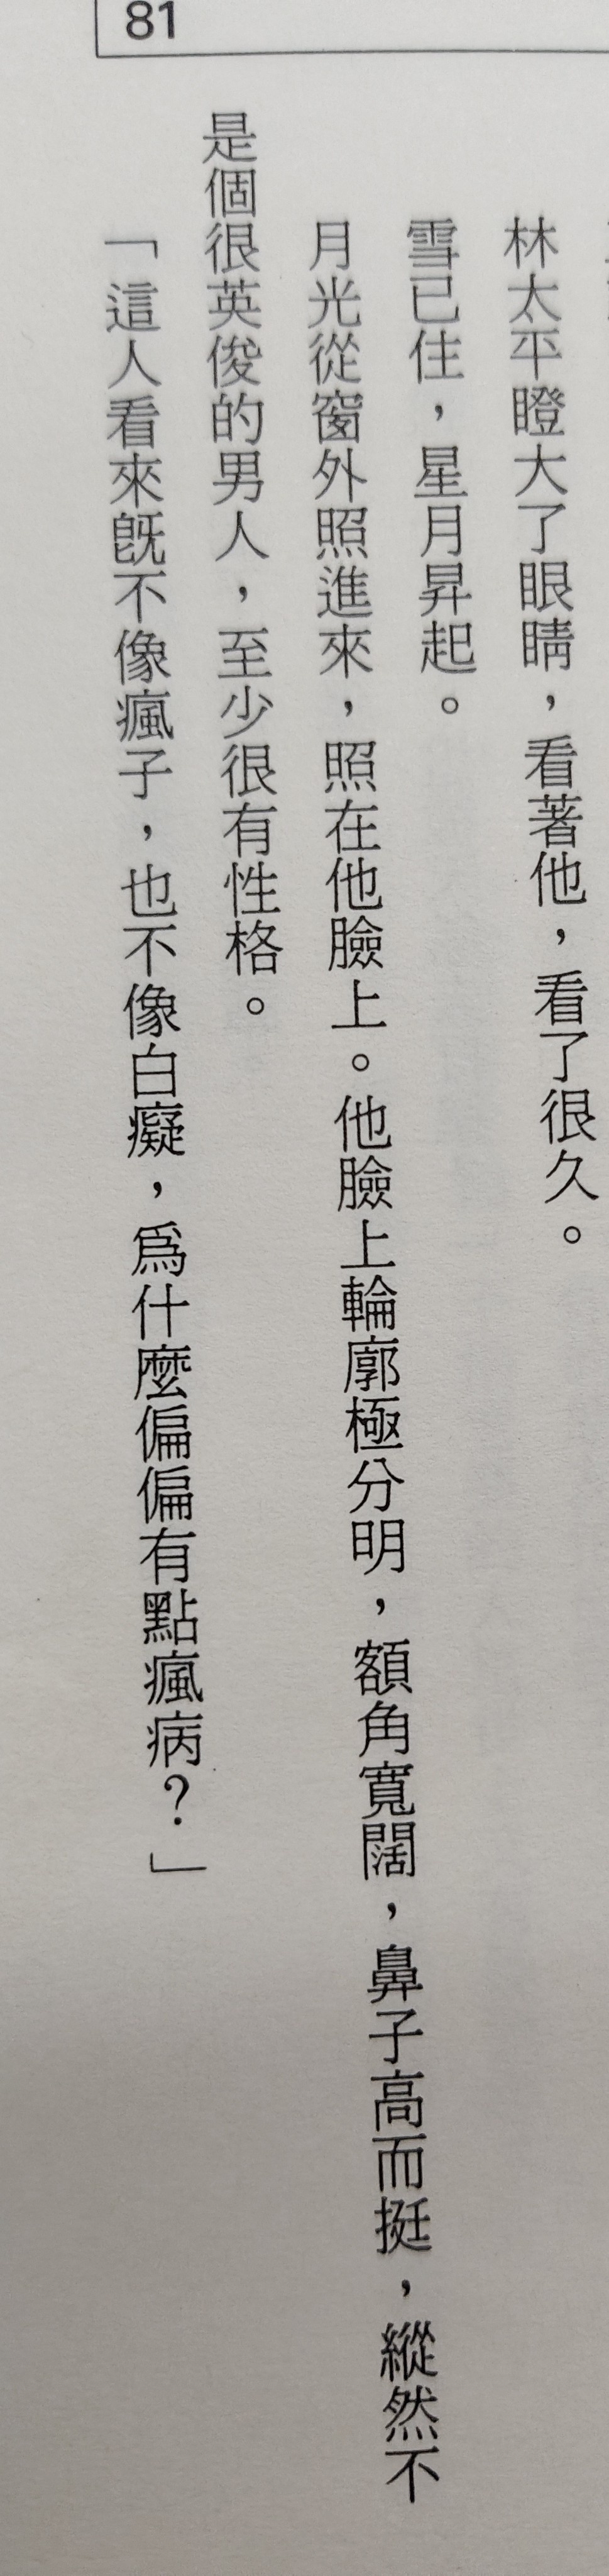 81
林太平瞪大了眼睛，看著他，看了很久。
雪已住，星月昇起。
月光從窗外照進來，照在他臉上。他臉上輪廓極分明，額角寬闊，鼻子高而挺，縱然不
是個很英俊的男人，至少很有性格。
「這人看來既不像瘋子，也不像白癡，爲什麼偏偏有點瘋病？」